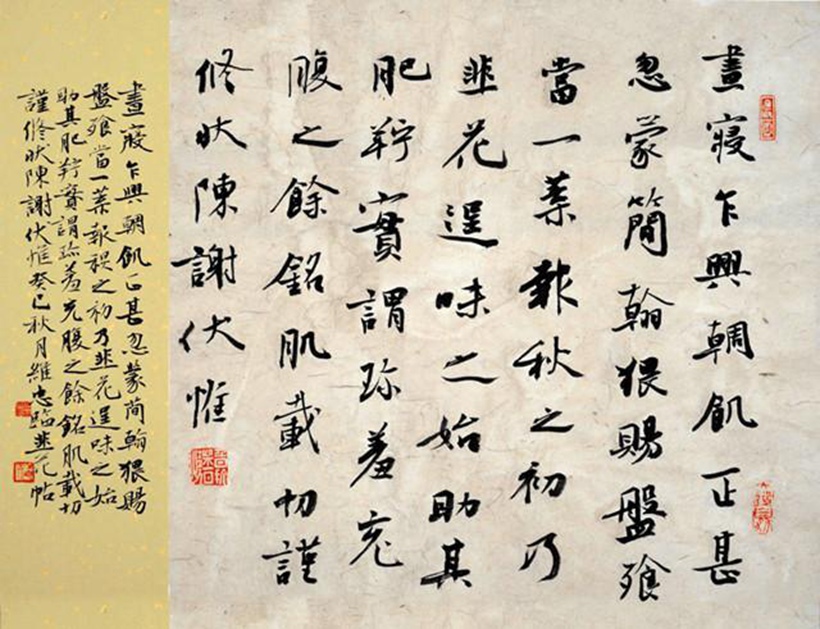 晝寢乍興輖飢正甚
忽蒙簡翰猥賜盤飧
當一葉報秋之初乃
韭花逞味之始助其
肥羜實謂珍羞充
腹之餘銘肌載切謹
修狀陳謝伏惟
晝寢乍興朝飢正甚忽蒙簡翰猥賜
盤飧當一葉報秋之初乃韭花逞味之始
助其肥羜實謂珍羞充腹之餘銘肌載切
謹修狀陳謝伏惟癸巳秋月維忠臨韭花帖